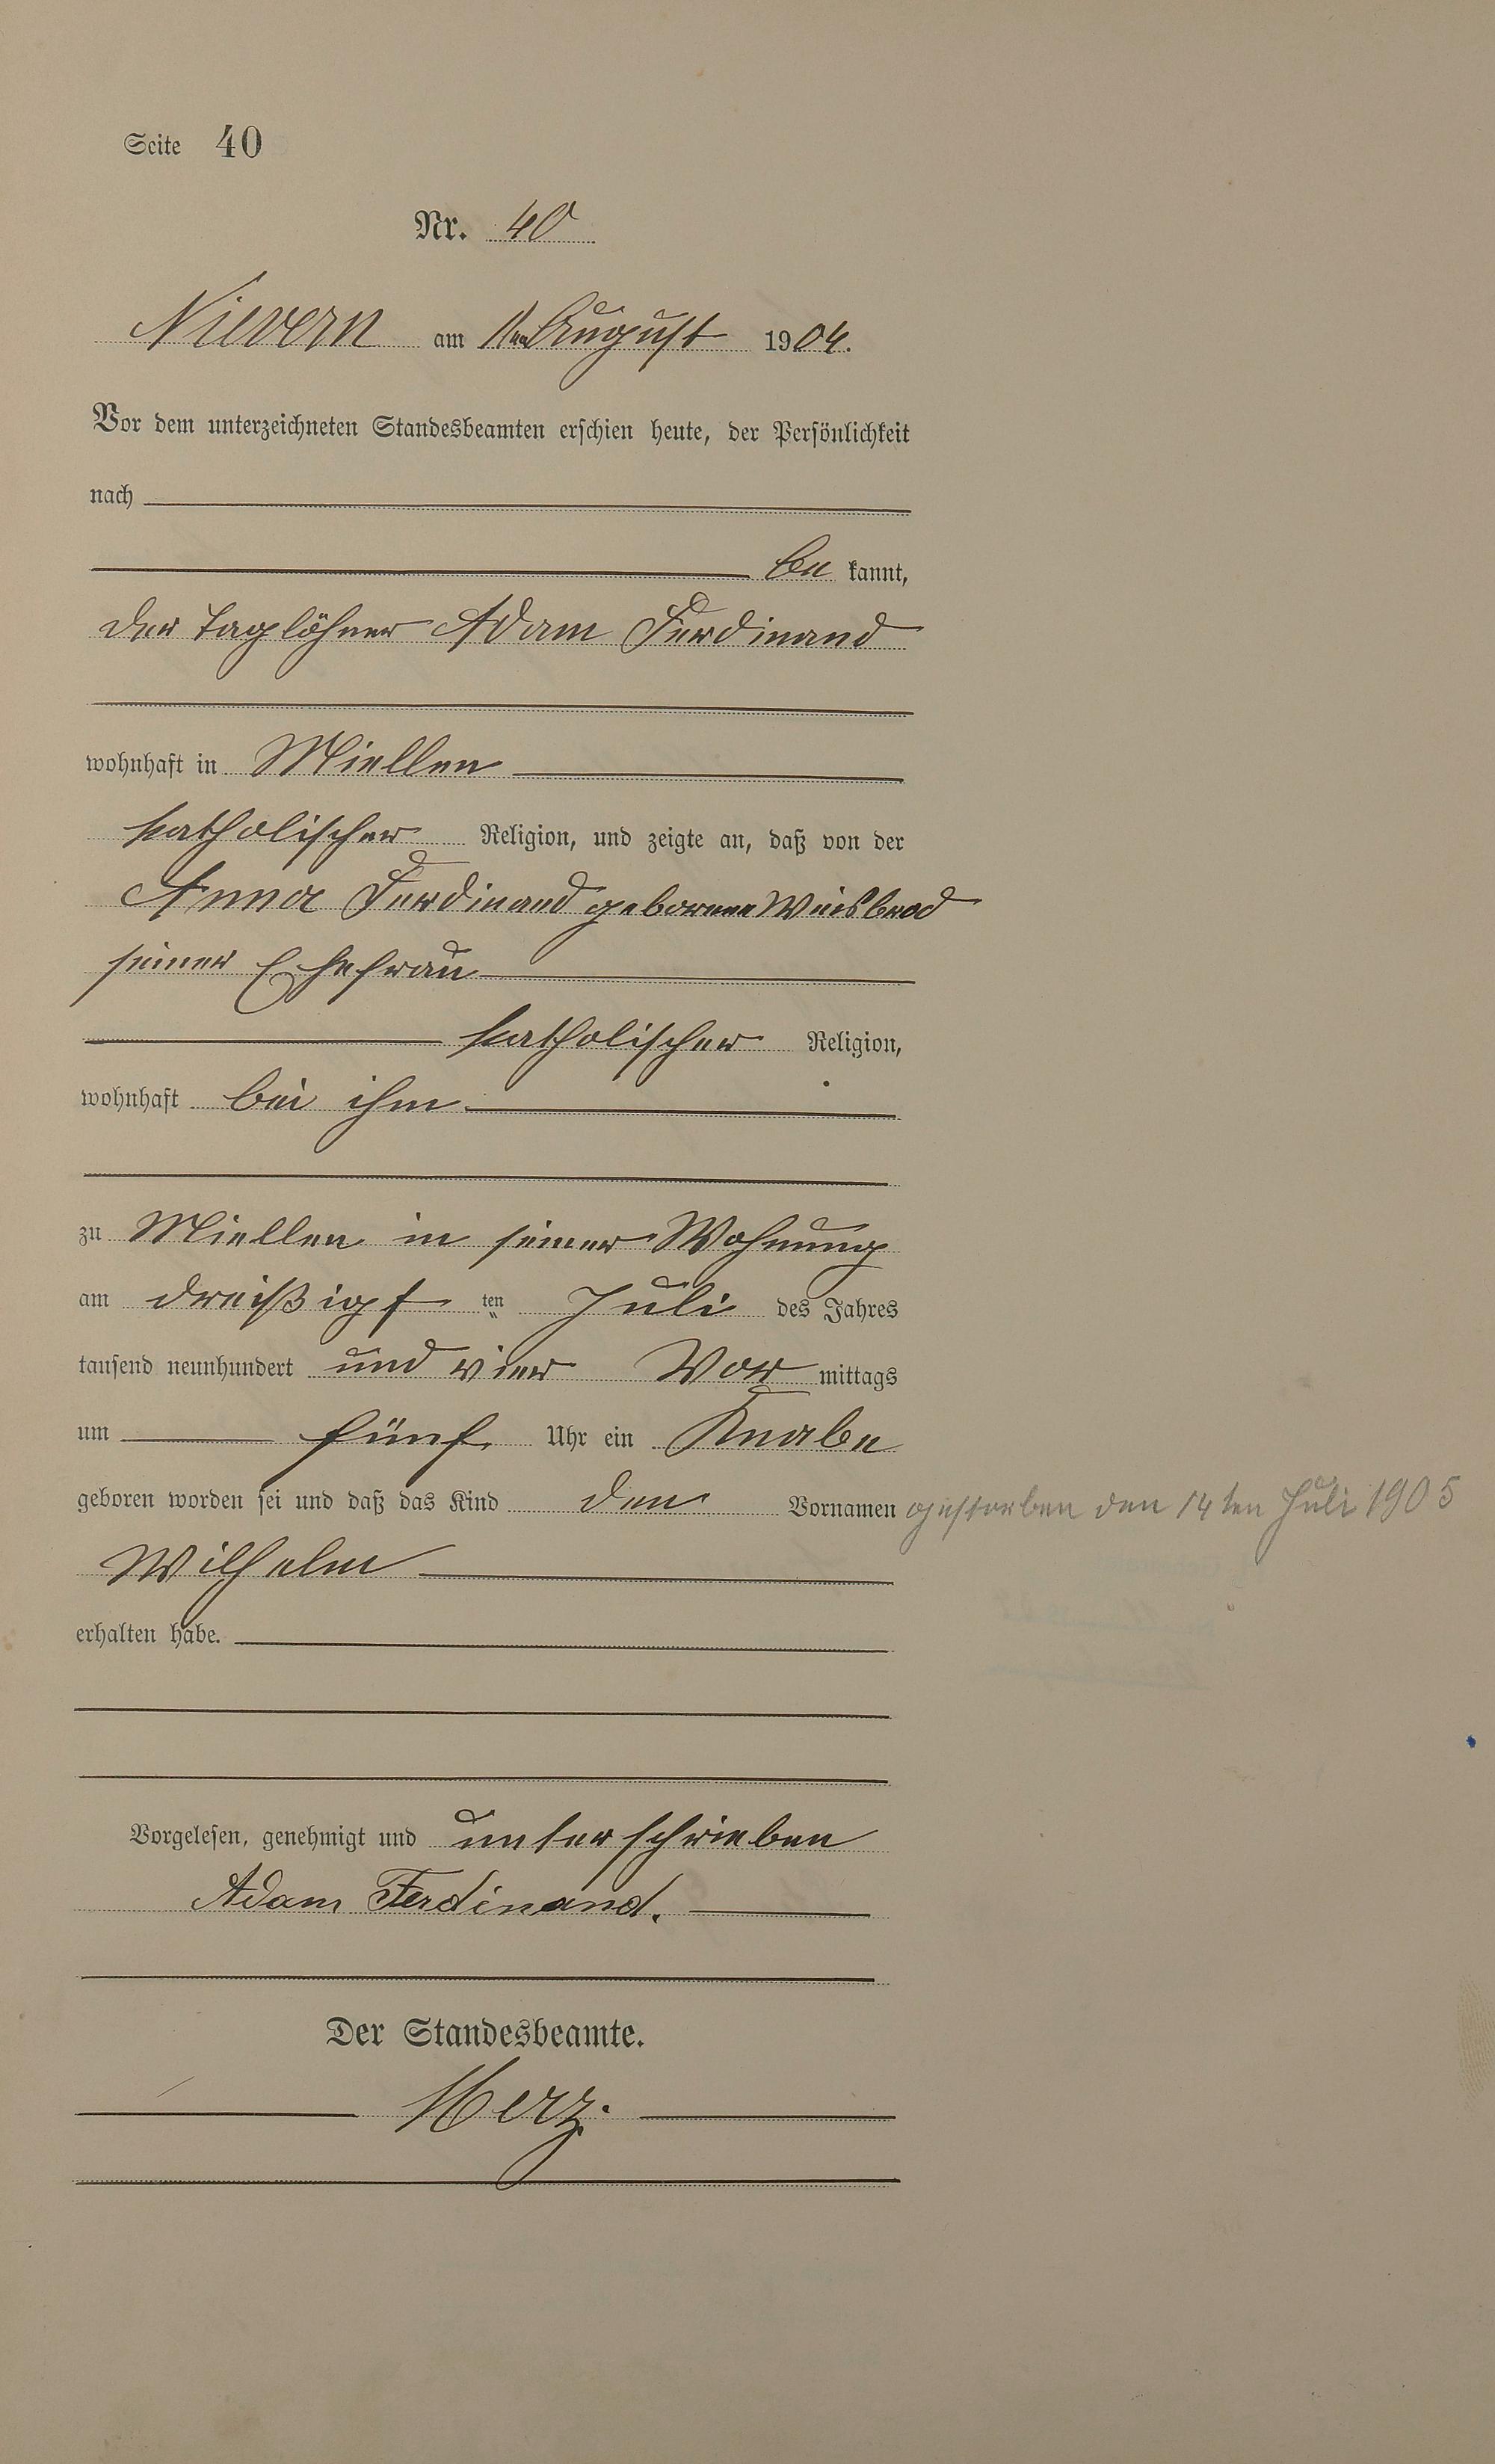 Seite 40
Nr. 40
Nievern am 1ten August 1904.
Vor dem unterzeichneten Standesbeamten erschien heute, der Persönlichkeit
nach
be kannt,
der Taglöhner Adam Ferdinand
wohnhaft in Miellen
katholischer Religion, und zeigte an, daß von der
Anna Ferdinand geborene Weisbrod
seiner Ehefrau
katholischer Religion,
wohnhaft bei ihm
zu Miellen in seiner Wohnung
am dreißigs ten Juli des Jahres
tausend neunhundert und vier Vor mittags
um fünf Uhr ein Knabe
geboren worden sei und daß das Kind den Vornamen gestorben den 14ten Juli 1905
Wilhelm
erhalten habe.
Vorgelesen, genehmigt und unterschrieben
Adam Ferdinand.
Der Standesbeamte.
Merz.